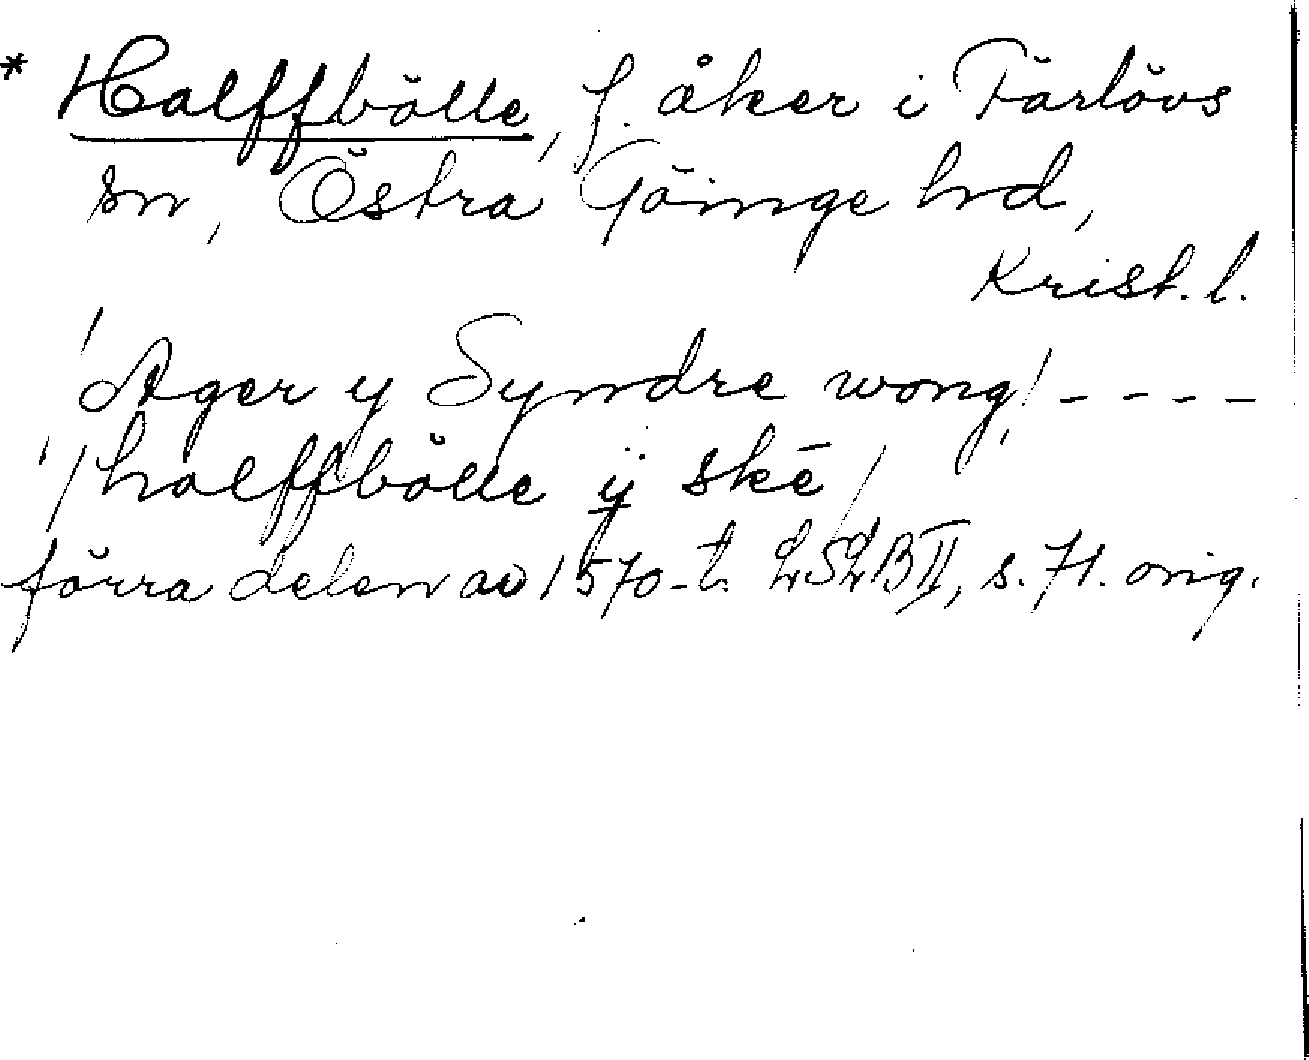 * Halffbölle, f. åker i Färlövs
sn, Östra Göinge hd,
Krist. l.
/Ager y Syndre wong/ - - - -
/ halffbölle ÿ skē /
förra delen av 1570-t. LSLB II, s. 71. orig.